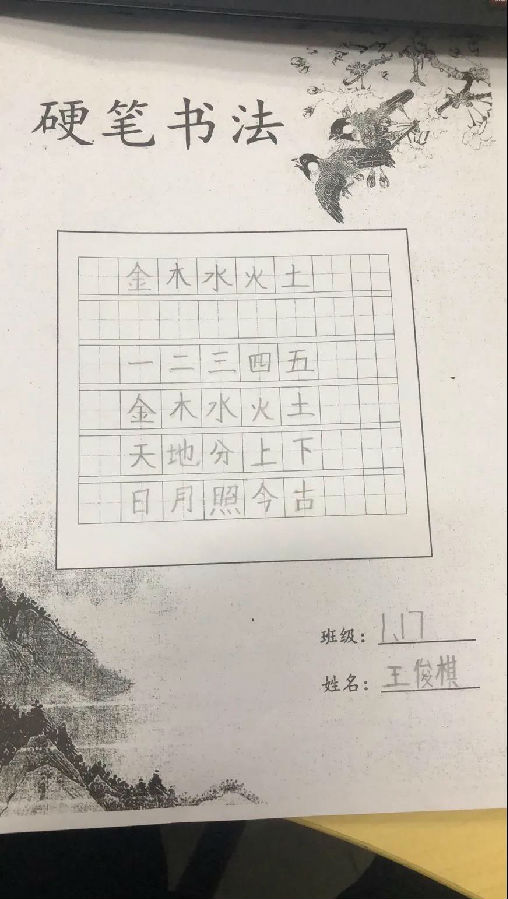 硬笔书法
金木水火土
一二三四五
金木水火土
天地分上下
日月照今古
班级：1.17
姓名：王俊棋